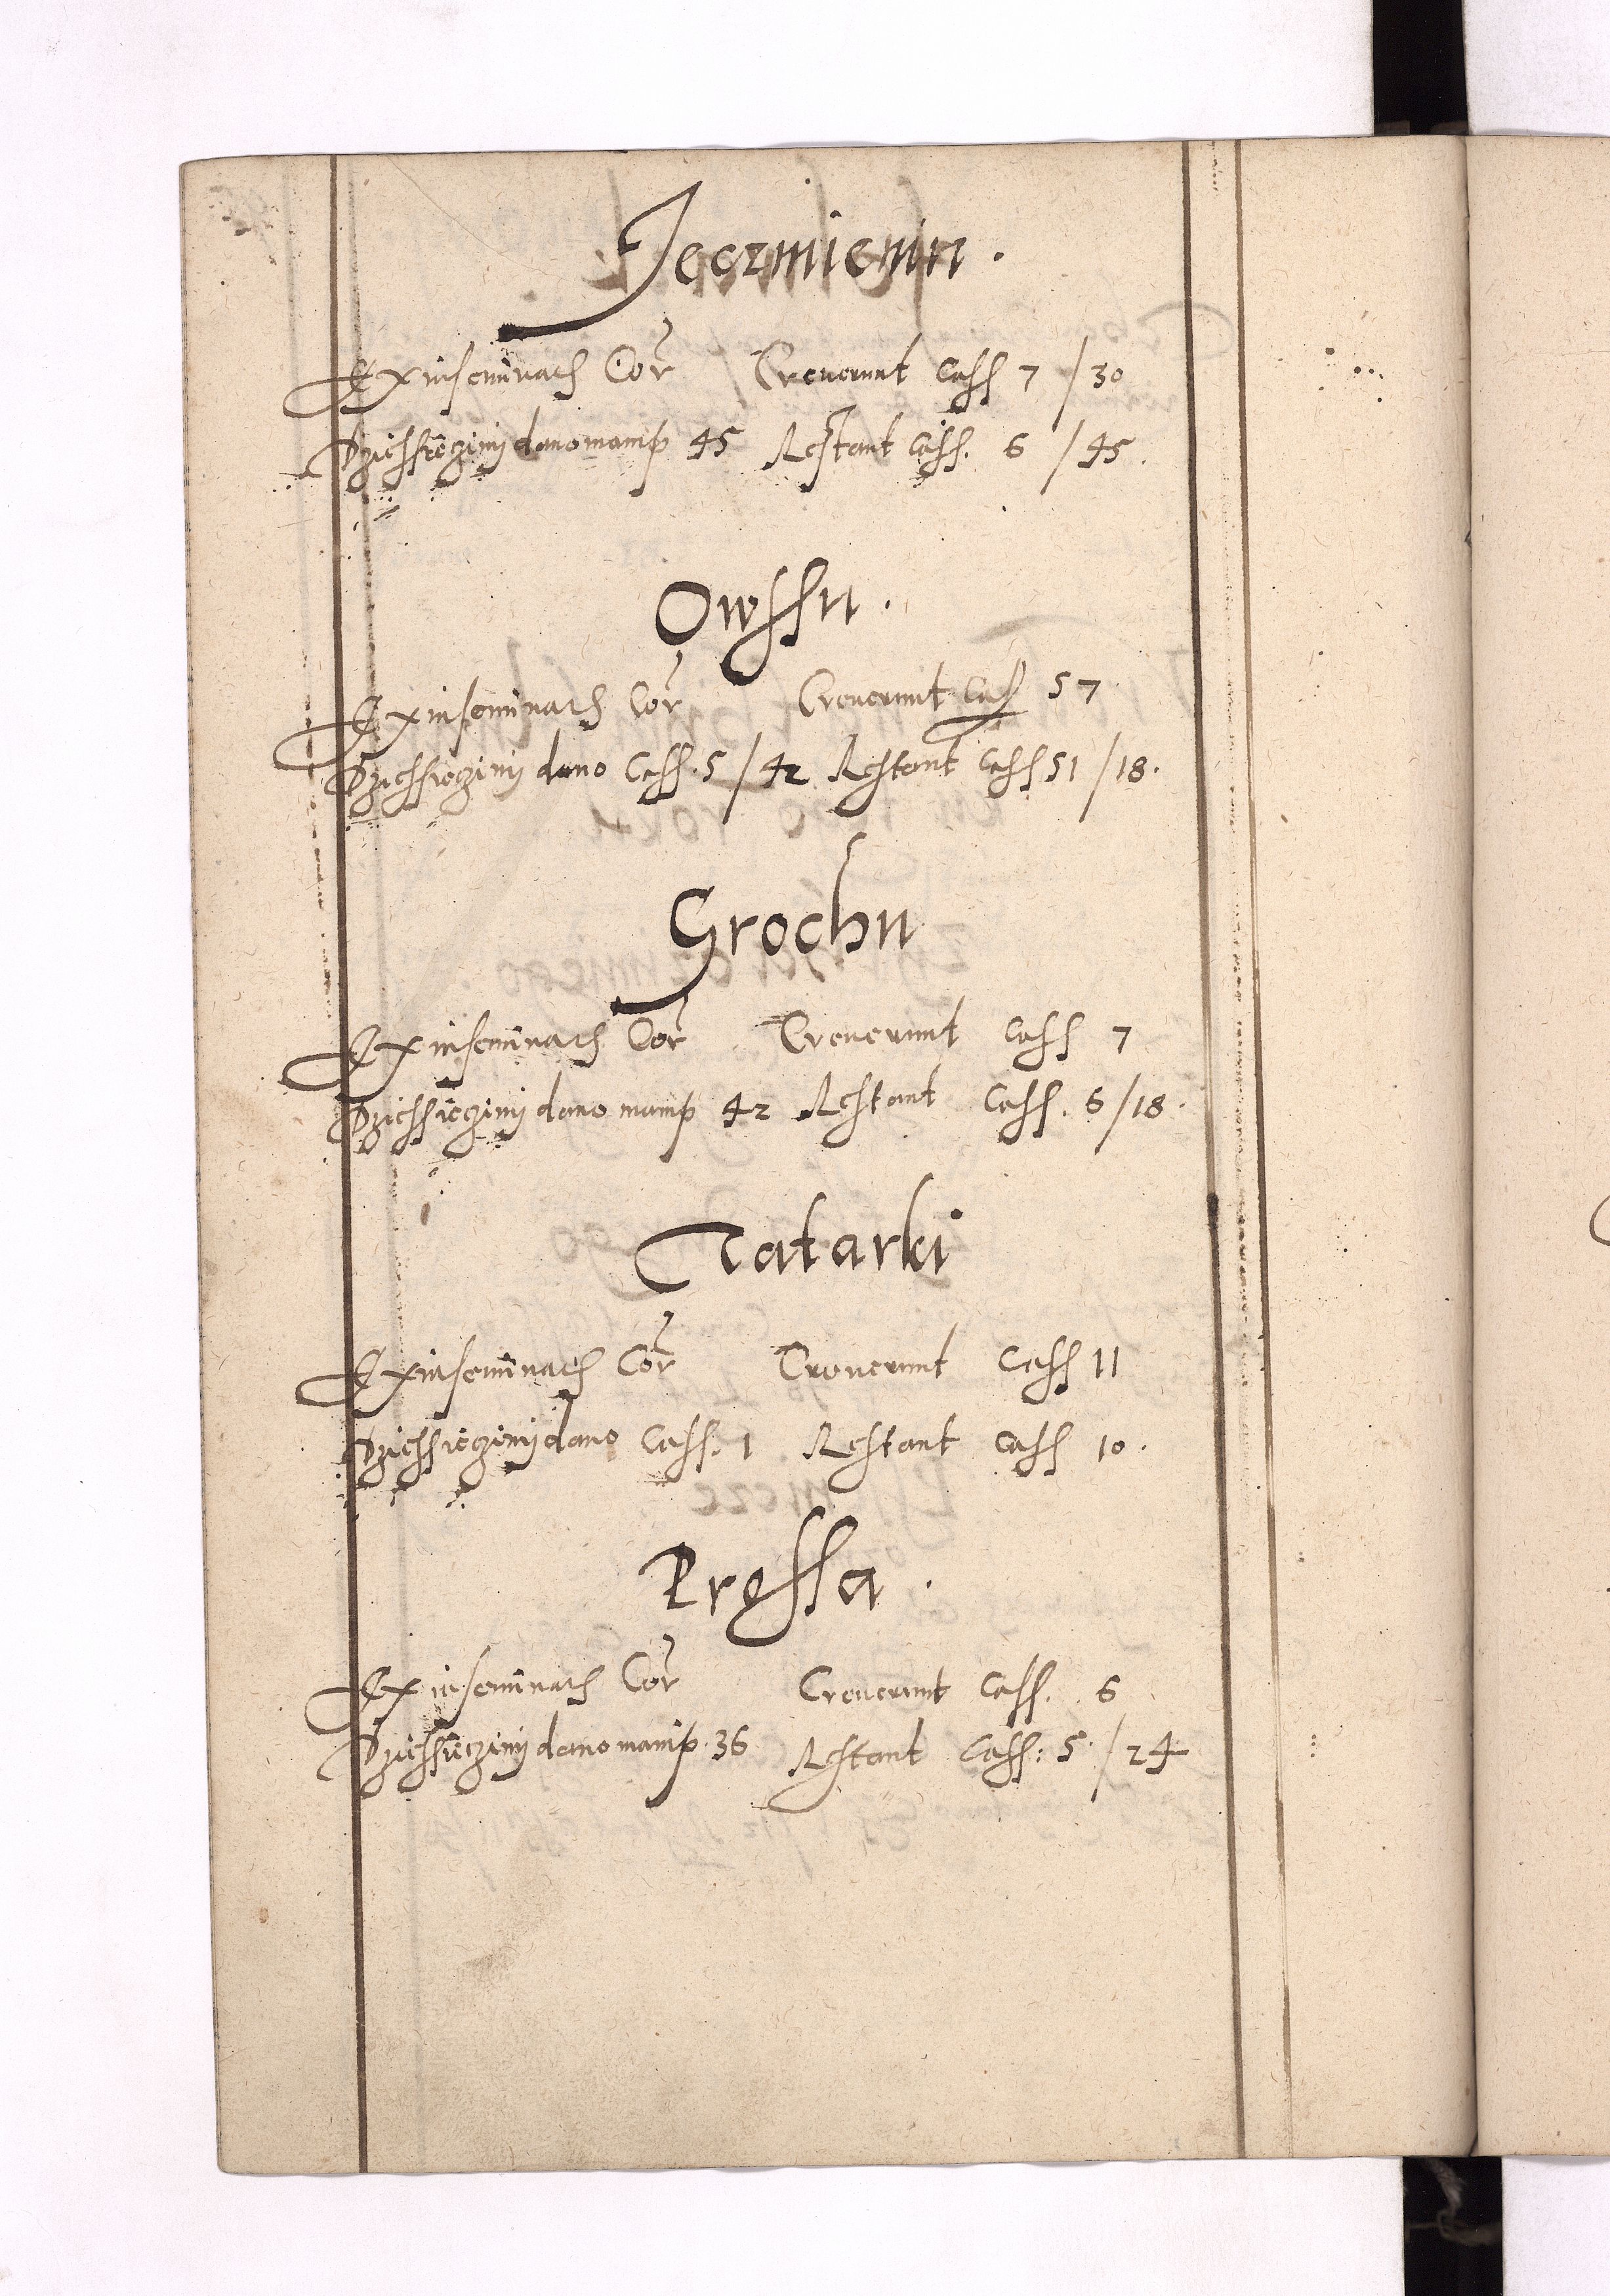 Jeczmienu.
Ex inseminatis Cor Creverunt Cass 7 / 30
Dziessięciny dano manip 45 Restant Cass. 6 / 45.
Owssu.
Ex inseminatis Cor Creverunt Cass 57
Dziessieciny dano Cass. 5 / 42 Restant Cass 51 / 18.
Grochu
Ex inseminatis Cor Creverunt Cass 7
Dziessięciny dano manip 42 Restant Cass. 6 / 18.
Tatarki
Ex inseminatis Cor Creverunt Cass 11
Dziessięciny dano Cass. 1 Restant Cass 10.
Prossa.
Ex inseminatis Cor Creverunt Cass. 6
Dziessięciny dano manip. 36 Restant Cass: 5. / 24